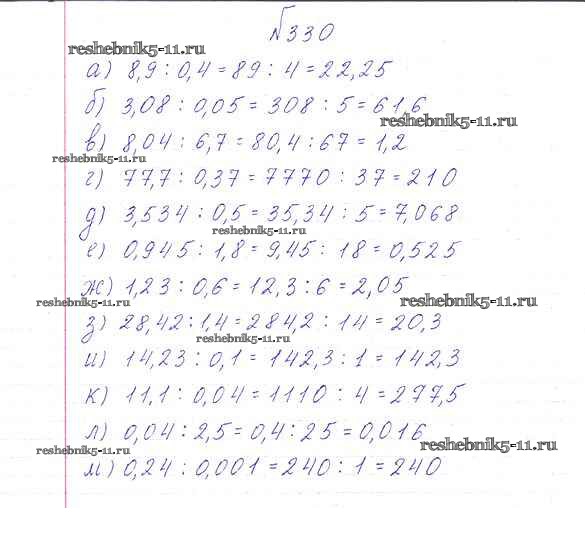 №330
reshebnik5-11.ru
а) 8,9 : 0,4 = 89 : 4 = 22,25
б) 3,08 : 0,05 = 308 : 5 = 61,6
reshebnik5-11.ru
в) 8,04 : 6,7 = 80,4 : 67 = 1,2
reshebnik5-11.ru
г) 77,7 : 0,37 = 7770 : 37 = 210
д) 3,534 : 0,5 = 35,34 : 5 = 7,068
reshebnik5-11.ru
е) 0,945 : 1,8 = 9,45 : 18 = 0,525
ж) 1,23 : 0,6 = 12,3 : 6 = 2,05
reshebnik5-11.ru
reshebnik5-11.ru
з) 28,42 : 1,4 = 284,2 : 14 = 20,3
reshebnik5-11.ru
и) 14,23 : 0,1 = 142,3 : 1 = 142,3
к) 11,1 : 0,04 = 1110 : 4 = 277,5
л) 0,04 : 2,5 = 0,4 : 25 = 0,016
reshebnik5-11.ru
reshebnik5-11.ru
м) 0,24 : 0,001 = 240 : 1 = 240